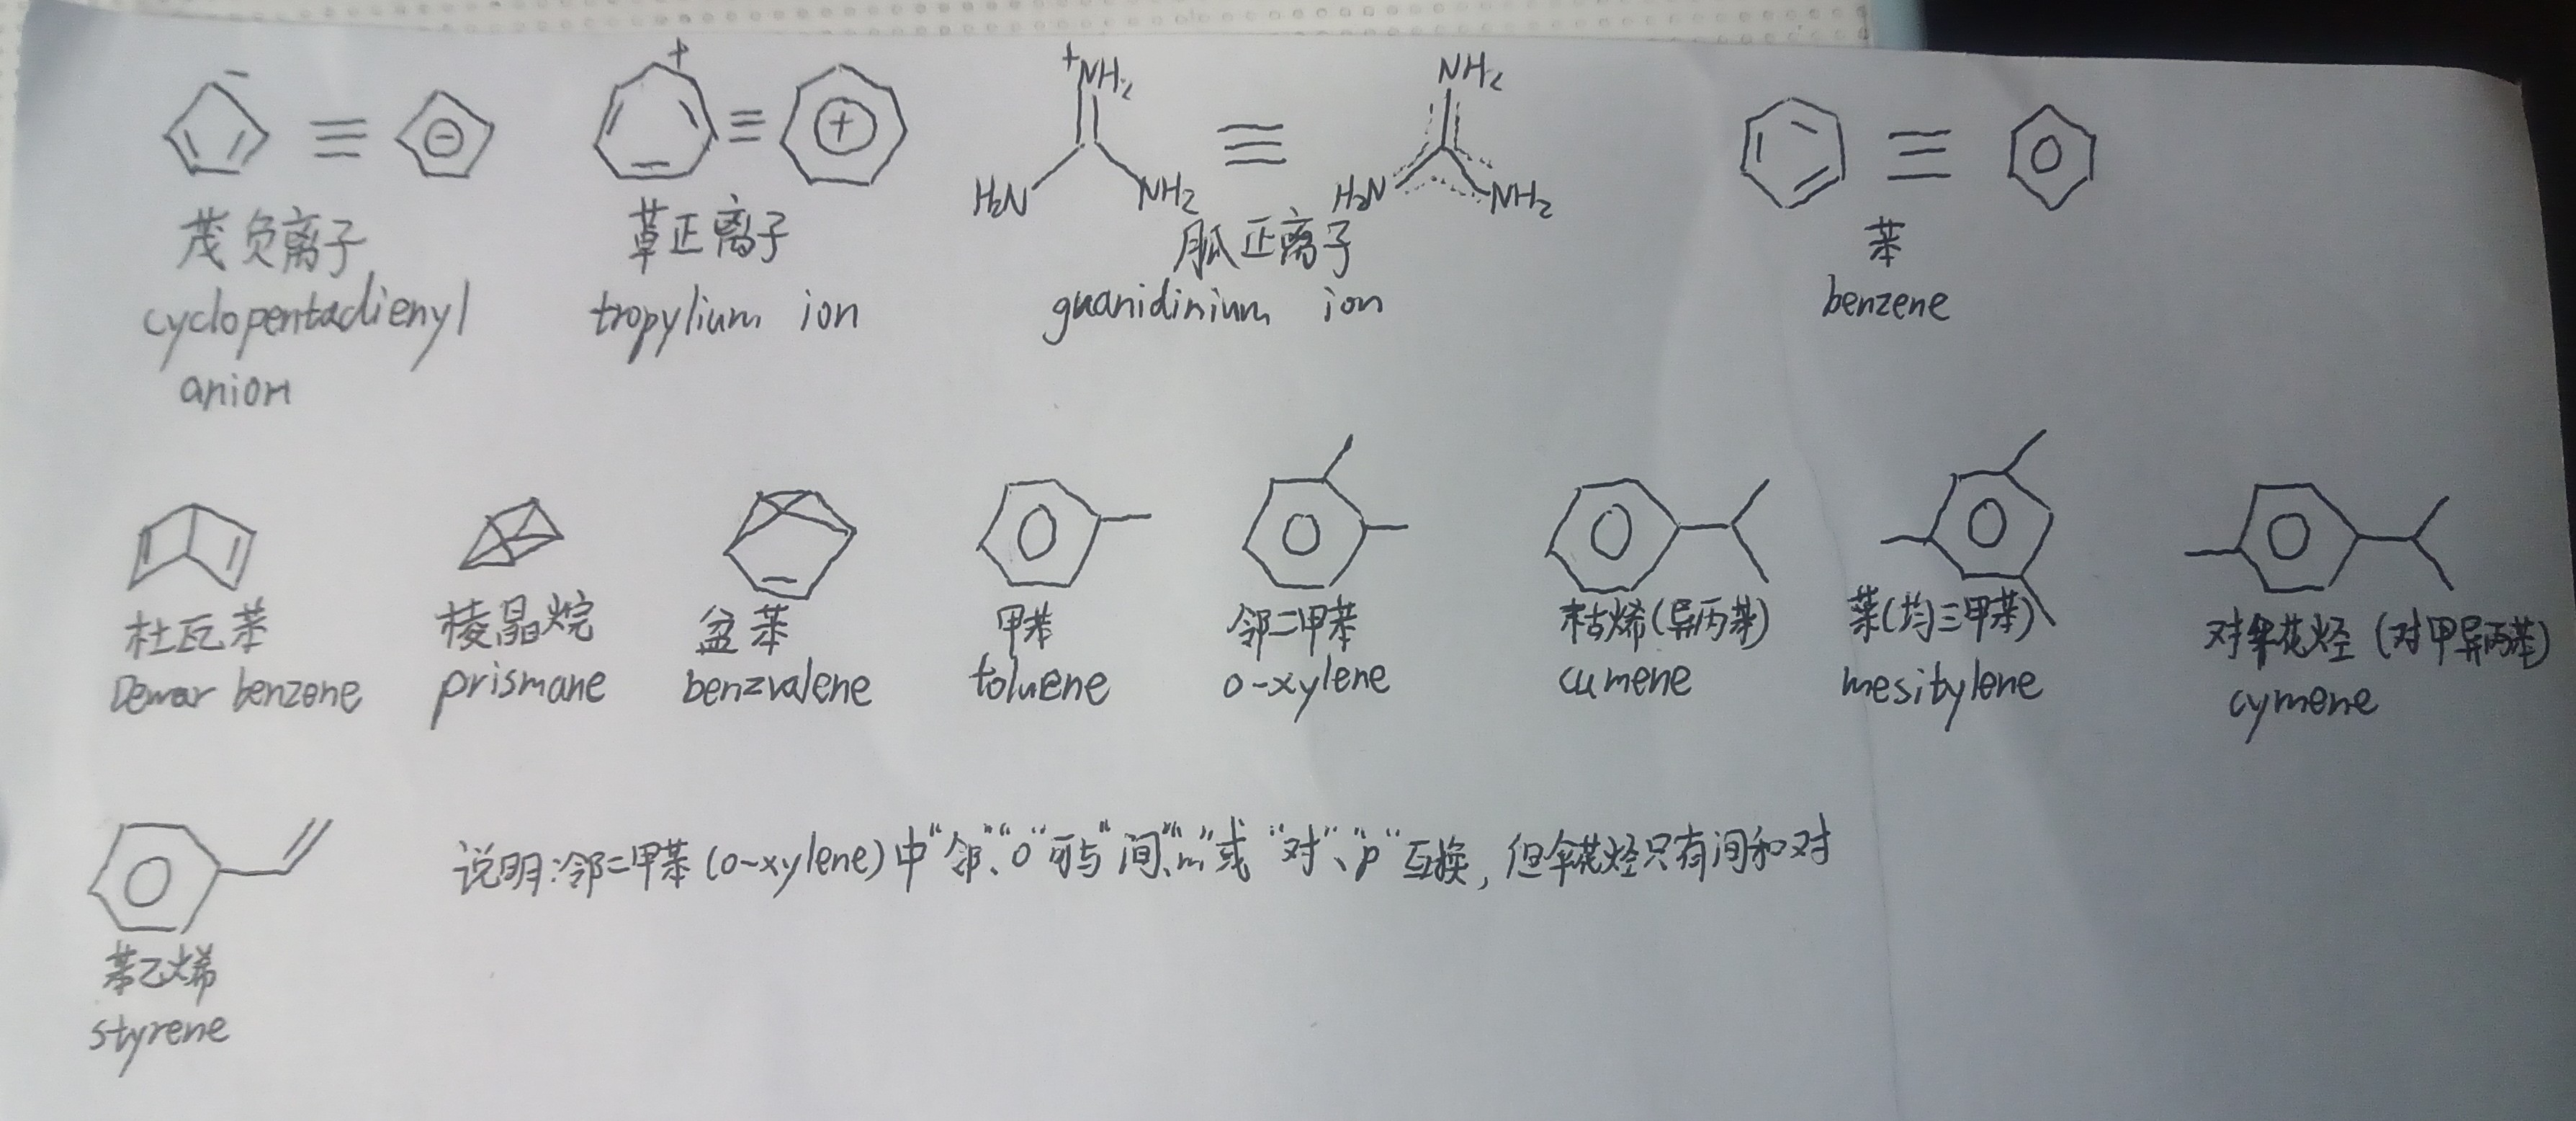 +NH2
NH2
H2N
NH2
H2N
NH2
茂负离子
cyclopentadienyl
anion
䓬正离子
tropylium ion
胍正离子
guanidinium ion
苯
benzene
杜瓦苯
Dewar benzene
棱晶烷
prismane
盆苯
benzvalene
甲苯
toluene
邻二甲苯
o-xylene
枯烯(异丙苯)
cumene
䒟(均三甲苯)
mesitylene
对伞花烃(对甲异丙苯)
cymene
苯乙烯
styrene
说明:邻二甲苯(o-xylene)中"邻"、"o"可与"间"、"m"或"对"、"p"互换,但伞花烃只有间和对